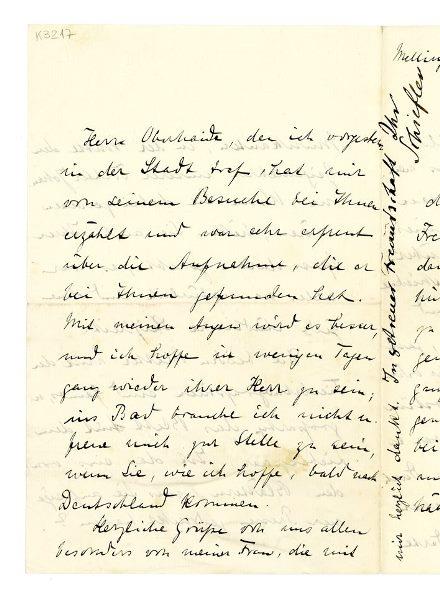 K3217
Herrn Oberheide, den ich vorgestern
in der Stadt traf, hat mir
von seinem Besuche bei Ihnen
erzählt und war sehr erfreut
über die Aufnahme, die er
bei Ihnen gefunden hat.
Mit meinen Augen wird es besser,
und ich hoffe in wenigen Tagen
ganz wieder ihrer Herr zu sein;
ins Bad brauche ich nicht u.
freue mich zur Stelle zu sein,
wenn Sie, wie ich hoffe, bald nach
Deutschland kommen.
Herzliche Grüße von uns allen
besonders von meiner Frau, die mit
mir herzlich dankt. In getreuer Freundschaft Ihr
Schiefler
Mellin